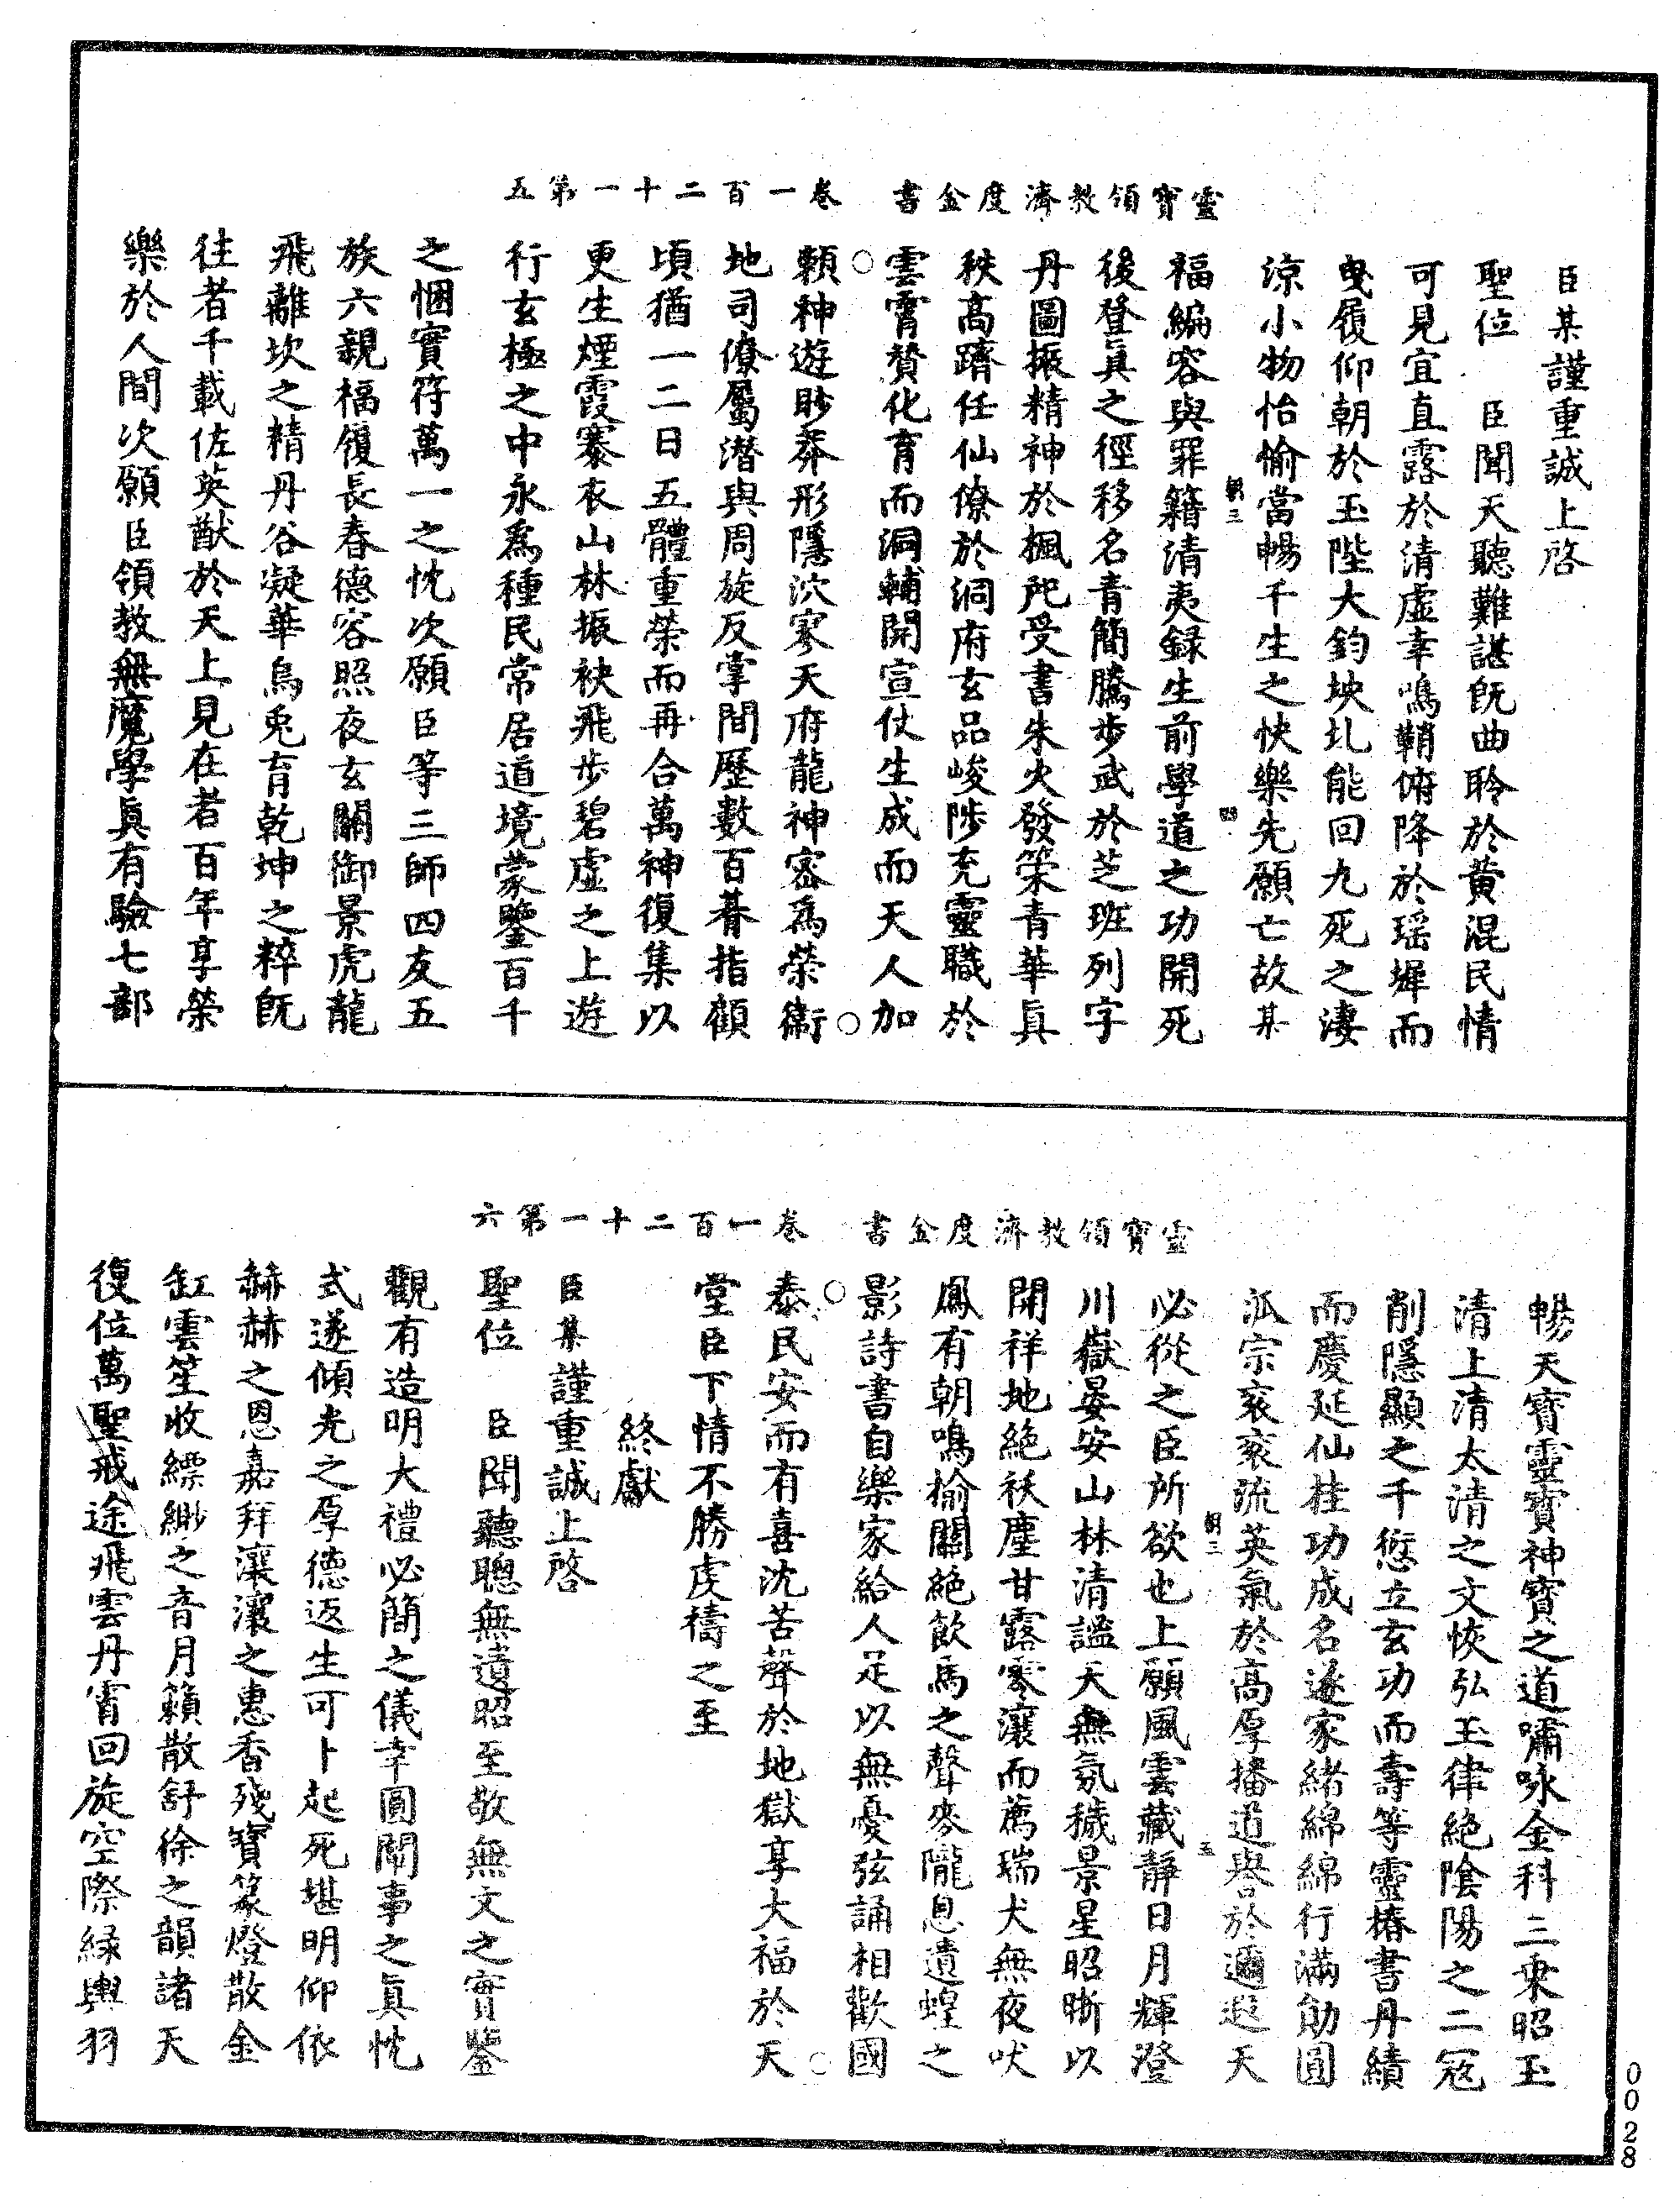 靈寶領教濟度金書　卷一百二十一第五
臣某謹重誠上啓
聖位　臣聞天聽難諶旣曲聆於黄混民情
可見宜直露於清虛幸鳴鞘俯降於瑶墀而
曳履仰朝於玉陛大鈞坱圠能回九死之淒
涼小物怡愉當暢千生之快樂先願亡故某
朝三
四
福編容與罪籍清夷録生前學道之功開死
後登眞之徑移名青簡騰步武於芝班列字
丹圖振精神於楓陁受書朱火發策青華眞
秩高躋任仙僚於洞府玄品峻陟充靈職於
雲霄贊化育而洞輔開宣仗生成而天人加
賴神遊眇莽形隱泬寥天府龍神密爲榮衛
地司僚屬潛與周旋反掌間歷數百朞指顧
頃猶一二日五體重榮而再合萬神復集以
更生煙霞褰衣山林振袂飛步碧虛之上遊
行玄極之中永爲種民常居道境蒙鑒百千
之悃實符萬一之忱次願臣等三師四友五
族六親福履長春德容照夜玄關御景虎龍
飛離坎之精丹谷凝華烏兎育乾坤之粹旣
往者千載佐英猷於天上見在者百年享榮
樂於人間次願臣領教無魔學眞有驗七部
靈寶領教濟度金書　卷一百二十一第六
暢天寶靈寶神寶之道嘯咏金科三乘昭玉
清上清太清之文恢弘玉律絶陰陽之二寇
削隱顯之千愆立玄功而壽等靈椿書丹績
而慶延仙桂功成名遂家緒綿綿行滿勛圓
派宗衮衮流英氣於高厚播道譽於邇遐天
朝三
五
必從之臣所欲也上願風雲藏靜日月輝澄
川嶽晏安山林清謐天無氛穢景星昭晰以
開祥地絶祅塵甘露零瀼而薦瑞犬無夜吠
鳳有朝鳴榆關絶飲馬之聲麥隴息遺蝗之
影詩書自樂家給人足以無憂弦誦相歡國
泰民安而有喜沈苦聲於地獄享大福於天
堂臣下情不勝虔禱之至
終獻
臣某謹重誠上啓
聖位　臣聞聽聰無遺昭至敬無文之實鑒
觀有造明大禮必簡之儀幸圓關事之眞忱
式遂傾光之厚德返生可卜起死堪明仰依
赫赫之恩嘉拜瀼瀼之惠香殘寶篆燈散金
缸雲笙收縹緲之音月籟散舒徐之韻諸天
復位萬聖戒途飛雲丹霄回旋空際緑輿羽
0028